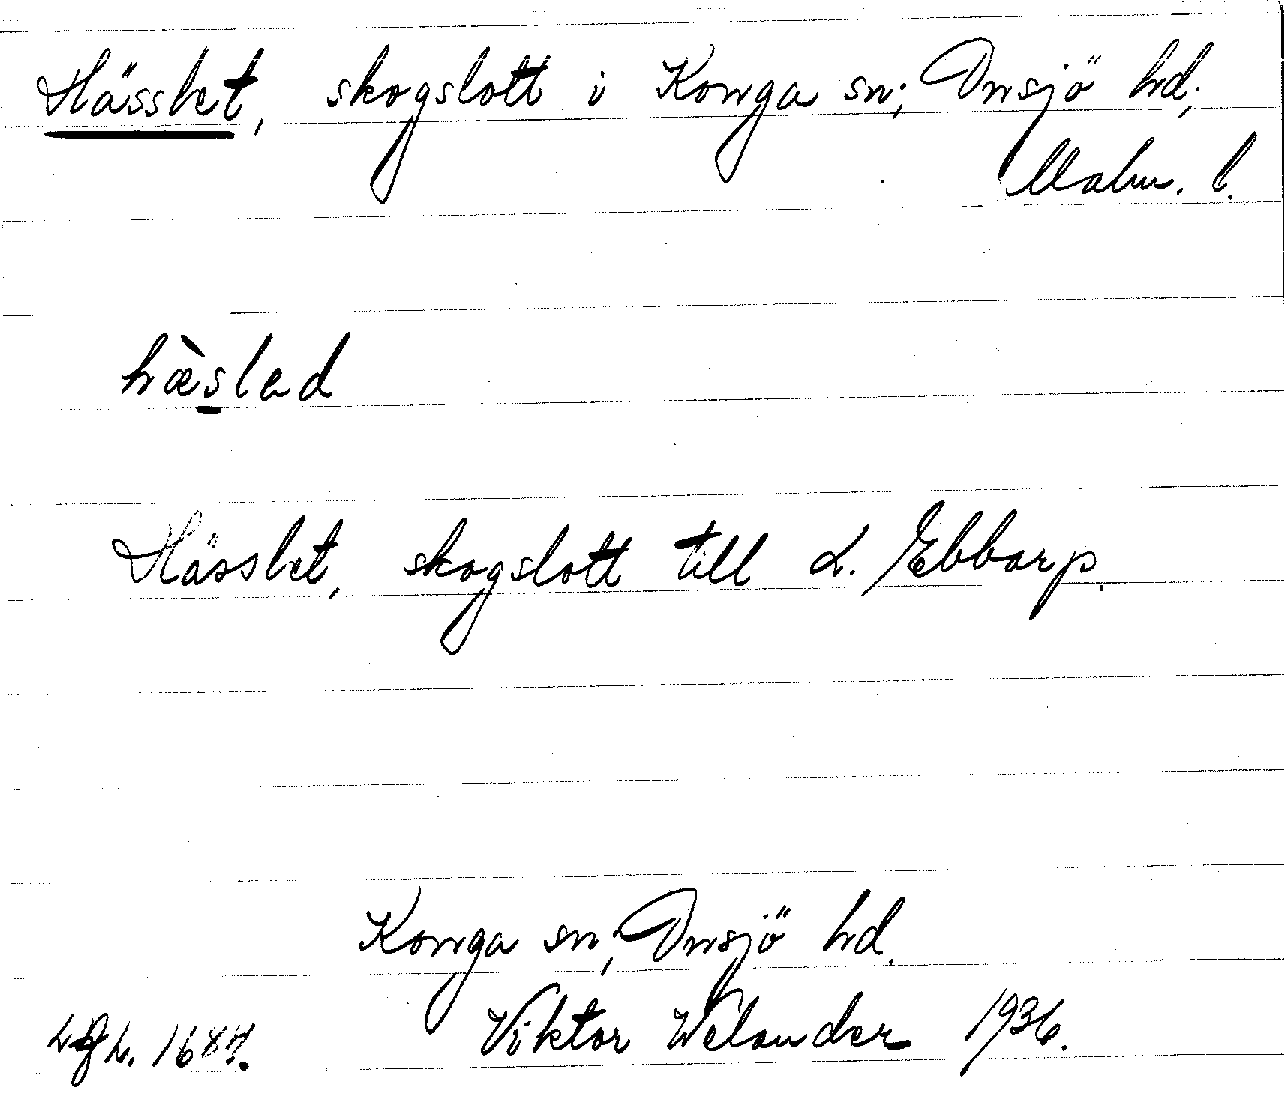 Hässlet, skogslott i Konga sn; Onsjö hd;
Malm. l.
hæ̀slad
Hässlet, skogslott till L. Ebbarp.
Konga sn, Onsjö hd.
Viktor Welander 1936.